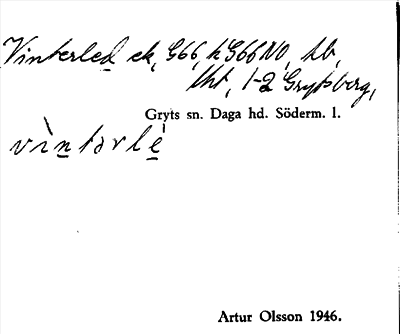 Vinterled ek, G66, h G66 NO, tb,
tht, 1-2 Grytsberg,
Gryts sn. Daga hd. Söderm. l.
vìntərlé
Artur Olsson 1946.